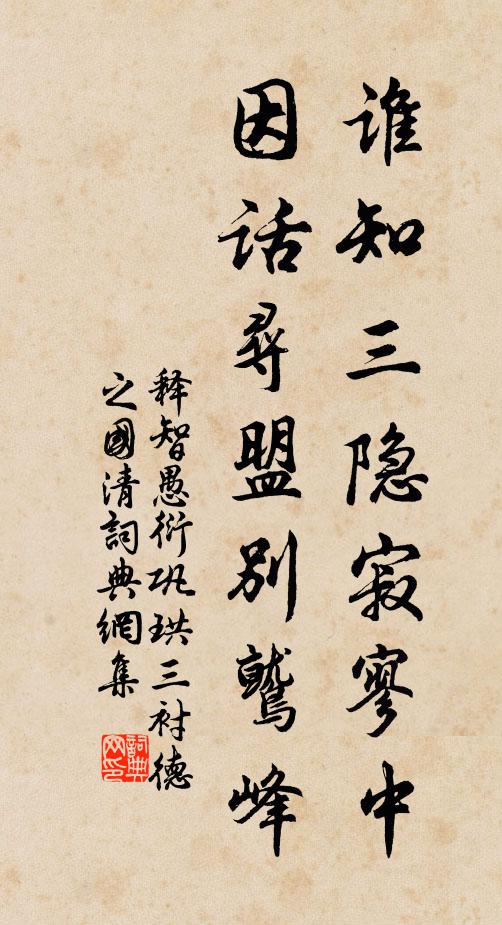 谁知三隐寂寥中
因话寻盟别鹫峰
释智愚衍巩珙三衬德
之國清詞典網集
詞典网印